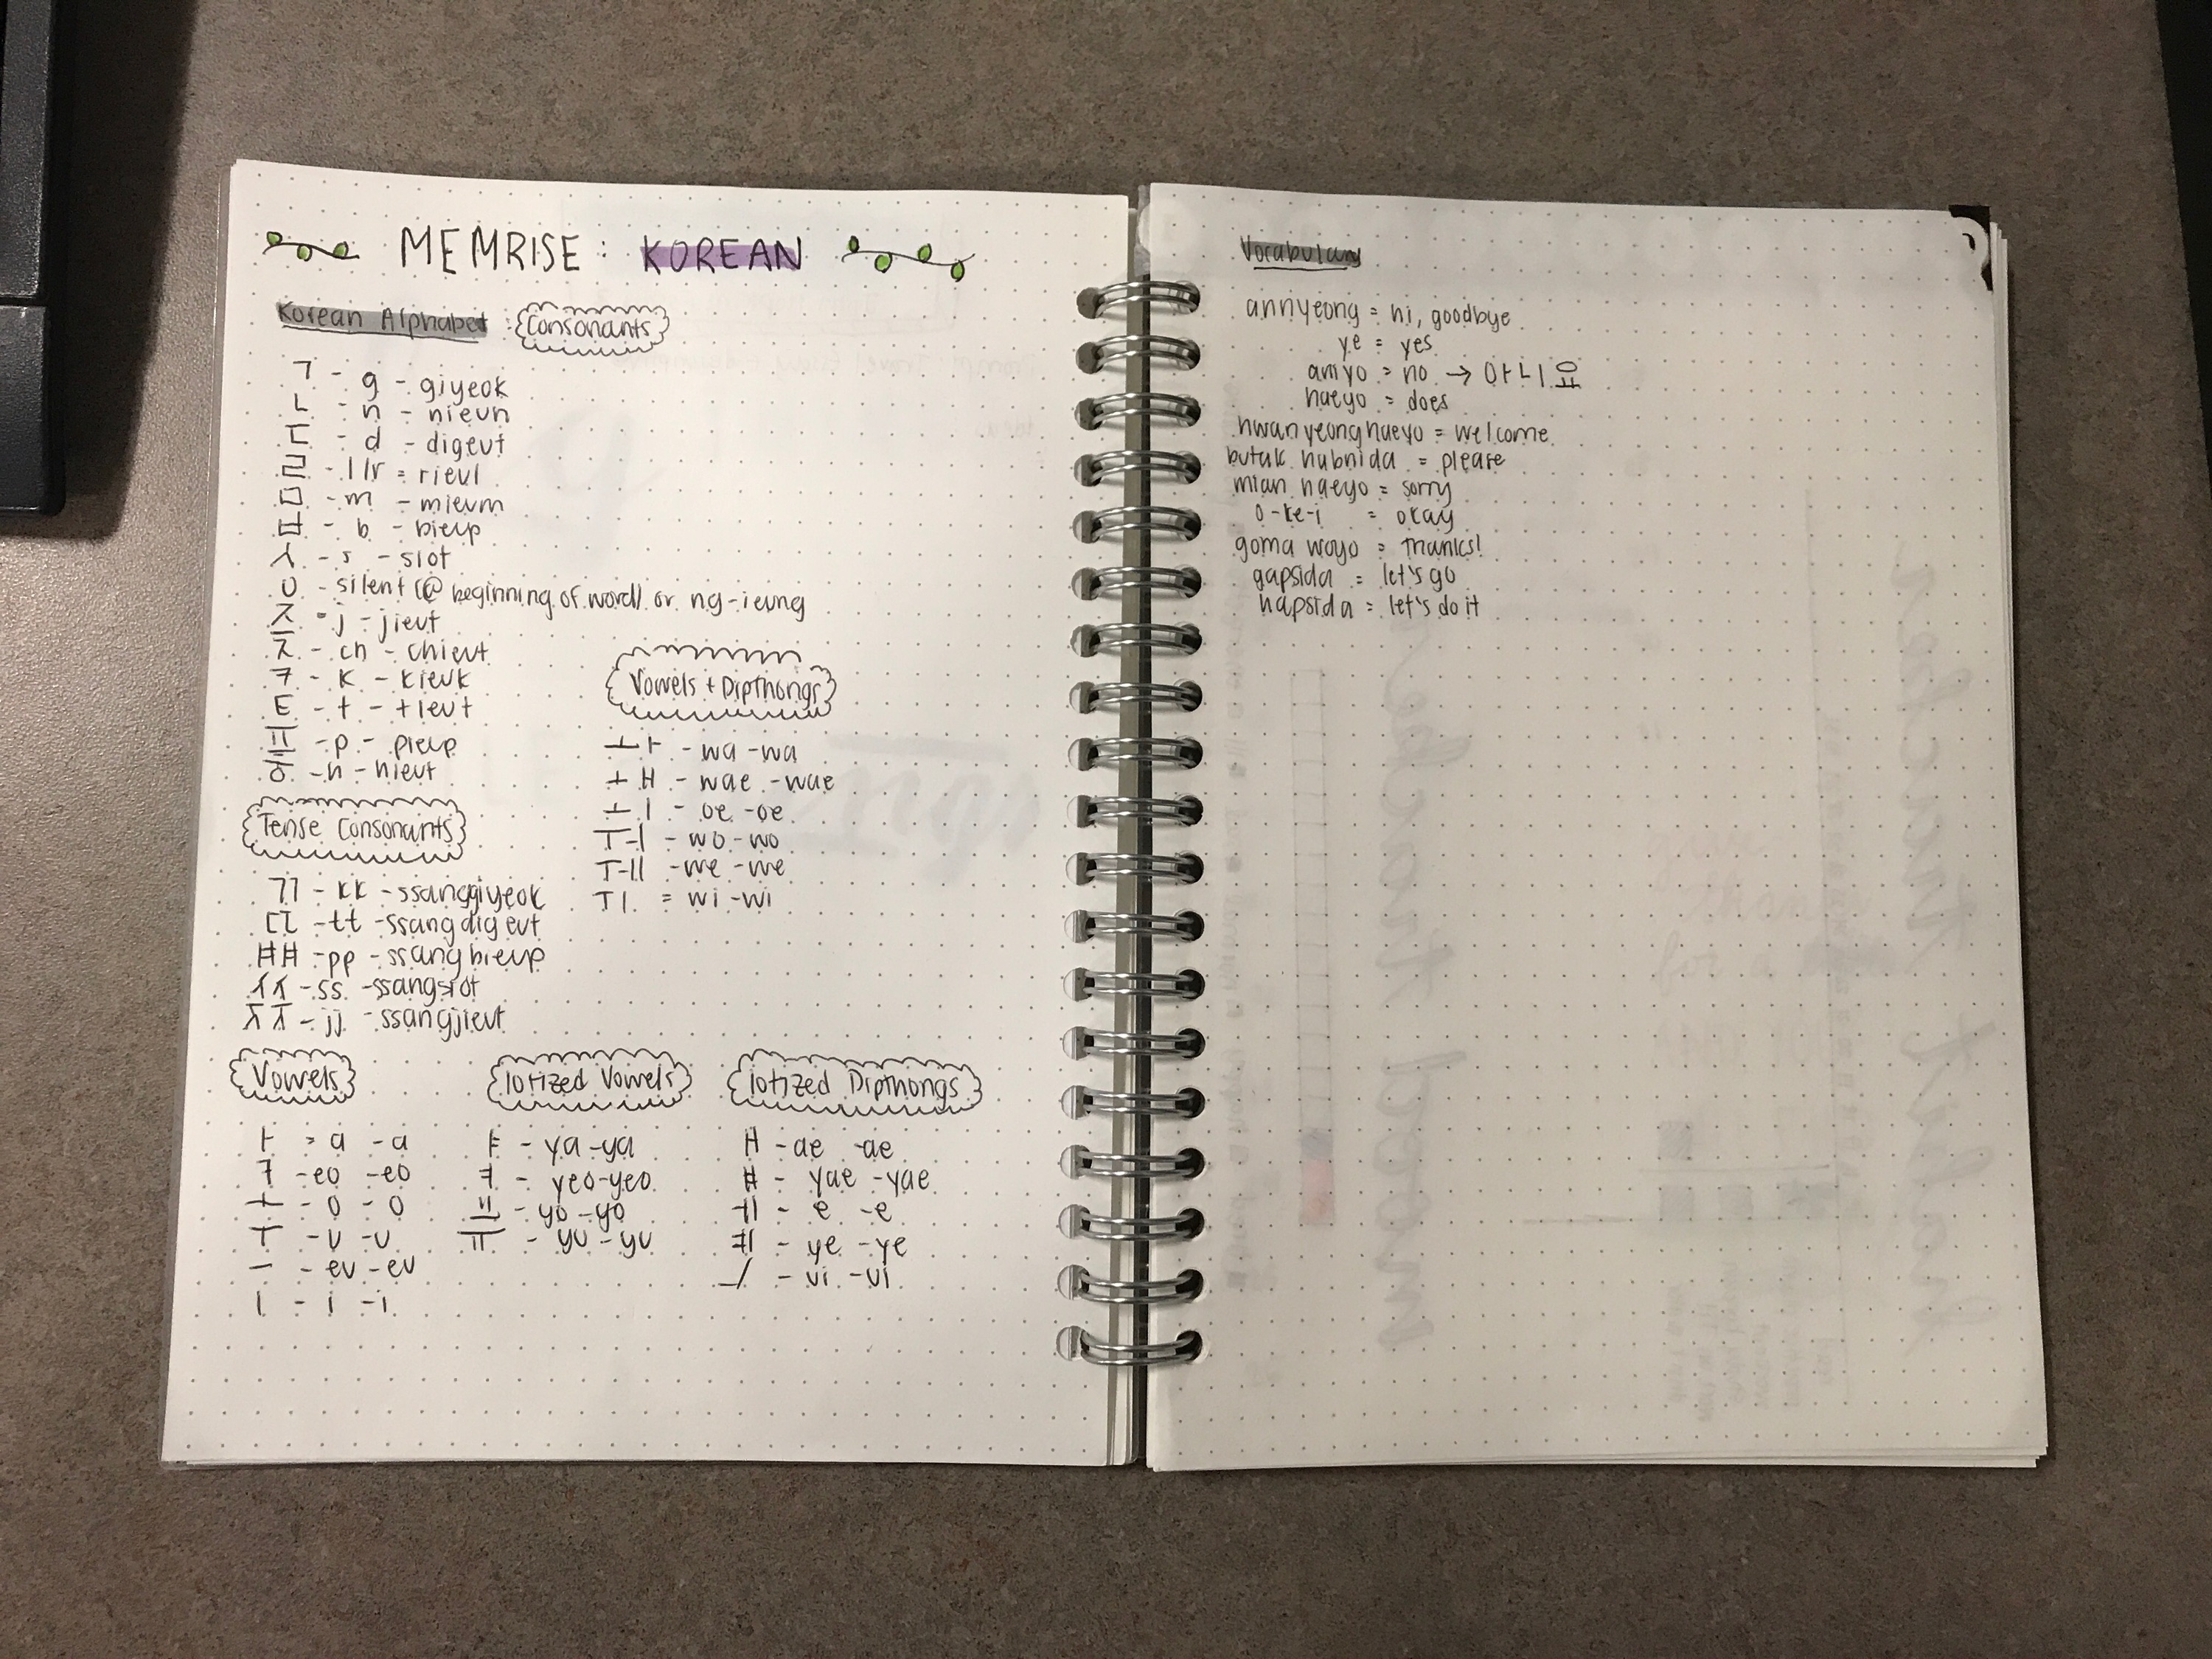 MEMRISE: KOREAN
Korean Alphabet: Consonants
ㄱ - g - giyeok
ㄴ - n - nieun
ㄷ - d - digeut
ㄹ - l/r = rieul
ㅁ - m - mieum
ㅂ - b - bieup
ㅅ - s - siot
ㅇ - silent (@ beginning of word) or ng - ieung
ㅈ - j - jieut
ㅊ - ch - chieut
ㅋ - k - kieuk
ㅌ - t - tieut
ㅍ - p - pieup
ㅎ - h - hieut
Tense Consonants
ㄲ - kk - ssanggiyeok
ㄸ - tt - ssangdigeut
ㅃ - pp - ssangbieup
ㅆ - ss - ssangsiot
ㅉ - jj - ssangjieut
Vowels + Dipthongs
ㅘ - wa - wa
ㅙ - wae - wae
ㅚ - oe - oe
ㅝ - wo - wo
ㅞ - we - we
ㅟ = wi - wi
Vowels
ㅏ = a - a
ㅓ - eo - eo
ㅗ - o - o
ㅜ - u - u
ㅡ - eu - eu
ㅣ - i - i
Iotized Vowels
ㅑ - ya - ya
ㅕ - yeo - yeo
ㅛ - yo - yo
ㅠ - yu - yu
Iotized Dipthongs
ㅐ - ae - ae
ㅒ - yae - yae
ㅔ - e - e
ㅖ - ye - ye
ㅢ - ui - ui
Vocabulary
annyeong = hi, goodbye
ye = yes
aniyo = no → 아니요
haeyo = does
hwanyeonghaeyo = welcome
butak habnida = please
mian haeyo = sorry
o-ke-i = okay
goma woyo = thanks!
gapsida = let's go
hapsida = let's do it